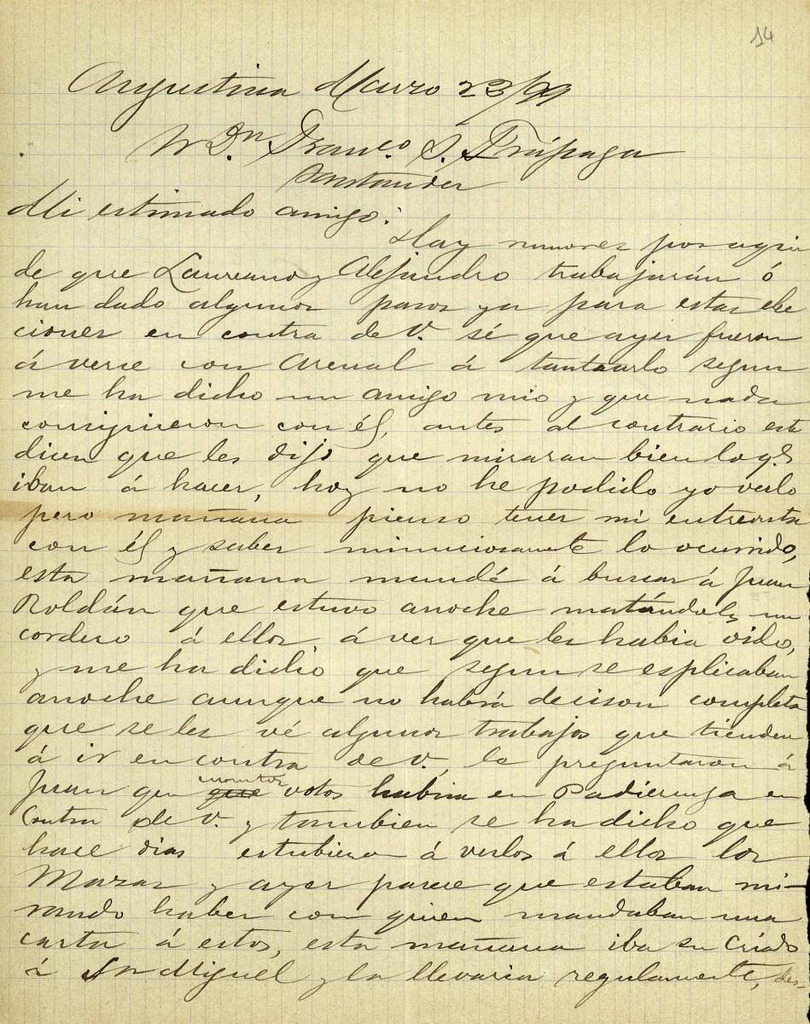 14
Angustina Marzo 23/99
Sr Dn. Franco. S. Trápaga
Santander
Mi estimado amigo:
Hay rumores por aqui
de que Laureano y Alejandro trabajarán ó
han dado algunos pasos ya para estas ele
ciones en contra de V. sé que ayer fueron
á verse con Arenal á tantearlo segun
me ha dicho un amigo mio y que nada
consiguieron con él, antes al contrario este
dicen que les dijo que miraran bien lo qe.
iban á hacer, hoy no he podido yo verlo
pero mañana pienso tener mi entrevista
con él y saber minuciosamente lo ocurrido,
esta mañana mandé á buscar á Juan
Roldán que estuvo anoche matándoles un
cordero á ellos, á ver que les habia oido,
y me ha dicho que segun se esplicaban
anoche aunque no habrá decison completa
que se les vé algunos trabajos que tienden
á ir en contra de V. le preguntaron á
Juan que cuantos votos habria en Padierniga en
Contra de V. y tambien se ha dicho que
hace dias estubieron á verlos á ellos los
Mazas y ayer parece que estaban mi-
rando haber con quien mandaban una
carta á estos, esta mañana iba su Criado
á Sn Miguel y la llevaria regularmente, des-